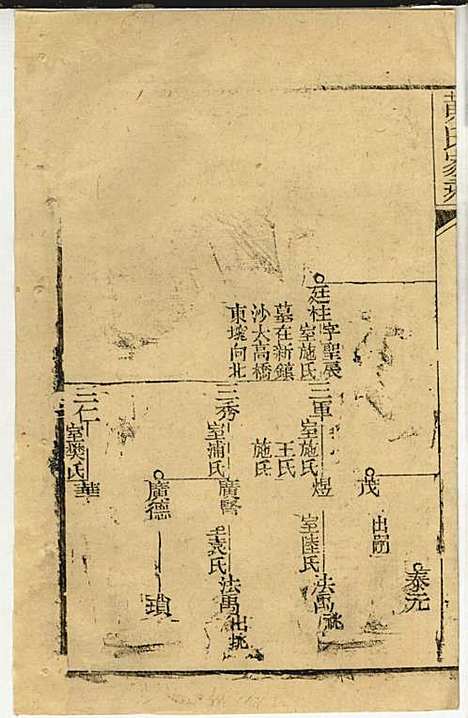 黃氏家乘
廷柱
字聖辰
室施氏
墓在新鎮
沙大高橋
東境向北
三軍
室施氏
王氏
施氏
煜
室陸氏
法禹
茂
出嗣
泰元
三秀
室浦氏
廣賢
袁氏
法禹
出祧
廣德
瑣
三仁
室樊氏
華